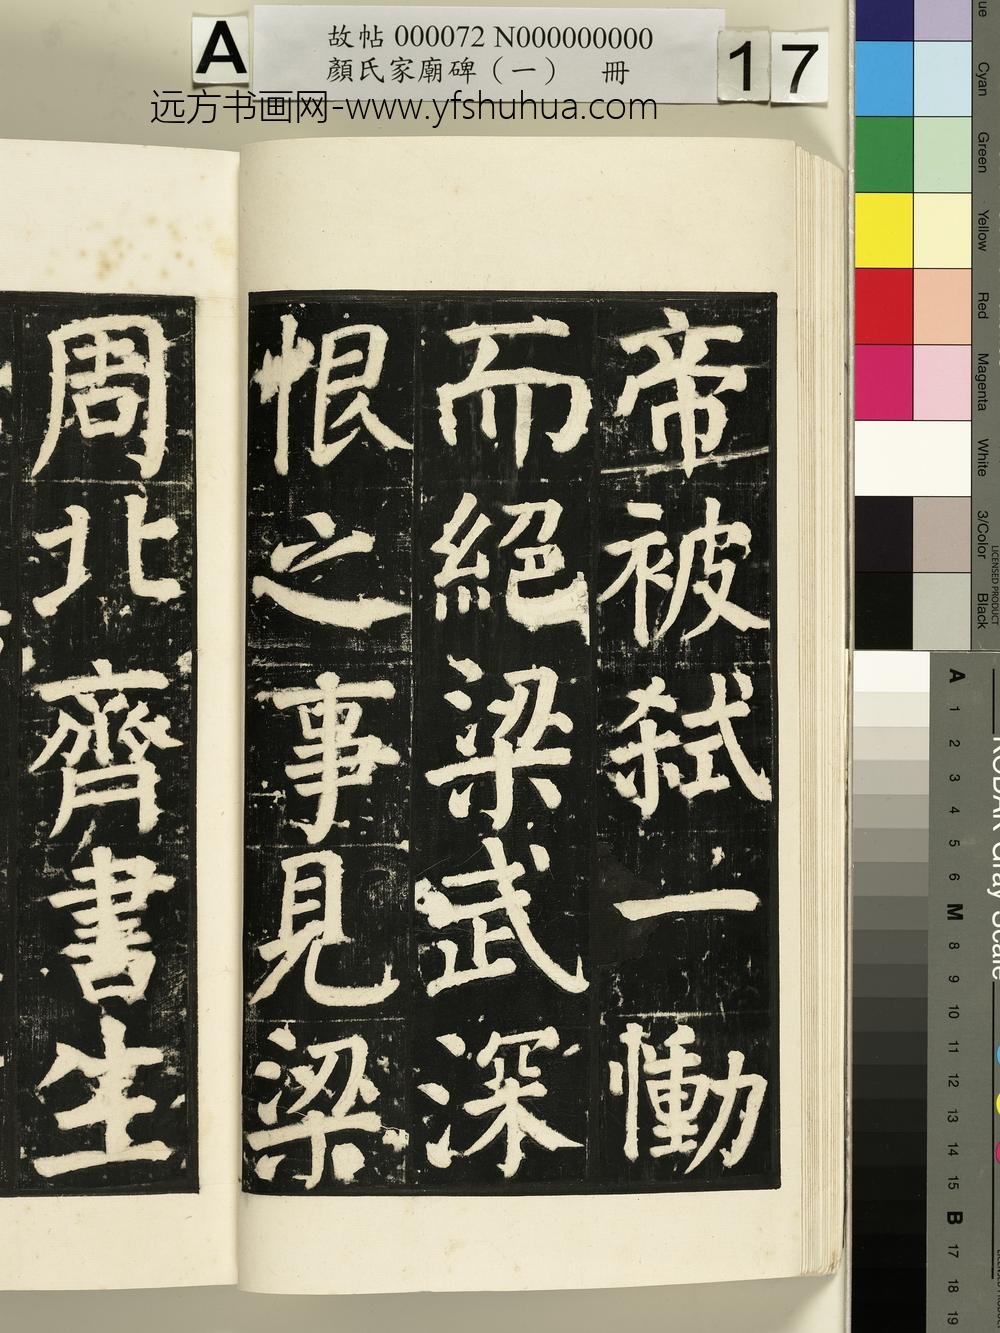 A
故帖 000072 N000000000
顏氏家廟碑（一） 冊
17
远方书画网-www.yfshuhua.com
帝被弑一慟
而絕梁武深
恨之事見梁
周北齊書生
Cyan
Green
Yellow
Red
Magenta
White
3/Color
Black
LICENSED PRODUCT
A
1
2
3
4
5
6
M
8
9
10
11
12
13
14
15
B
17
18
19